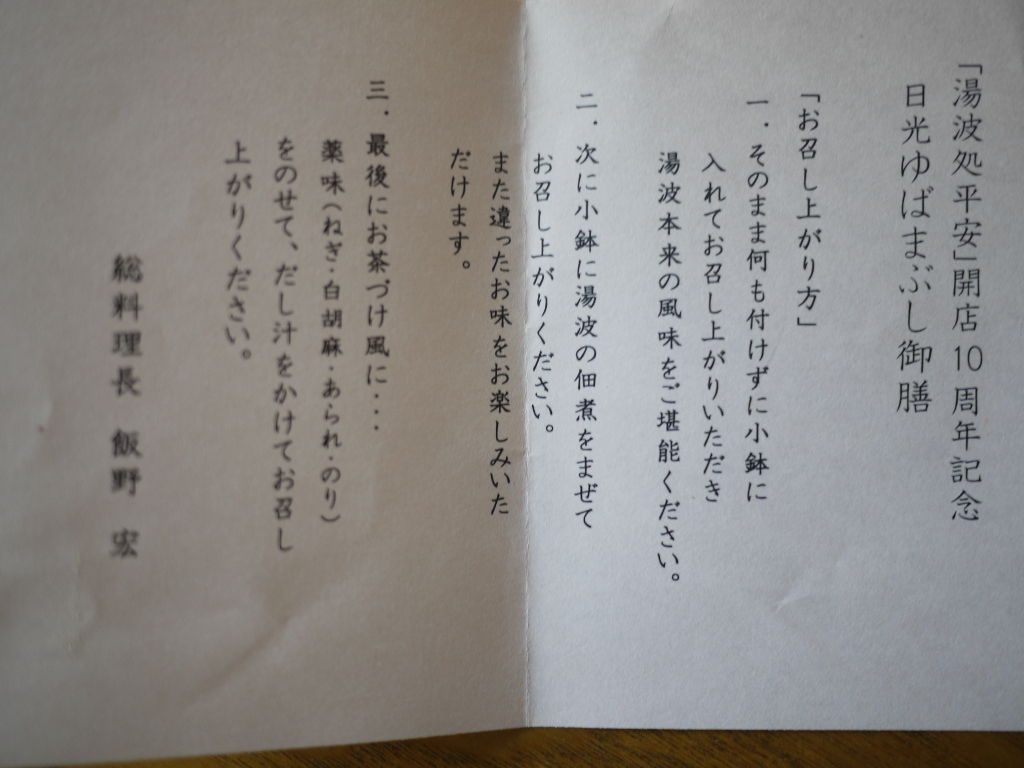 「湯波処平安」開店10周年記念
日光ゆばまぶし御膳
「お召し上がり方」
一．そのまま何も付けずに小鉢に
入れてお召し上がりいただき
湯波本来の風味をご堪能ください。
二．次に小鉢に湯波の佃煮をまぜて
お召し上がりください。
また違ったお味をお楽しみいた
だけます。
三．最後にお茶づけ風に・・・
薬味（ねぎ・白胡麻・あられ・のり）
をのせて、だし汁をかけてお召し
上がりください。
総料理長 飯野 宏